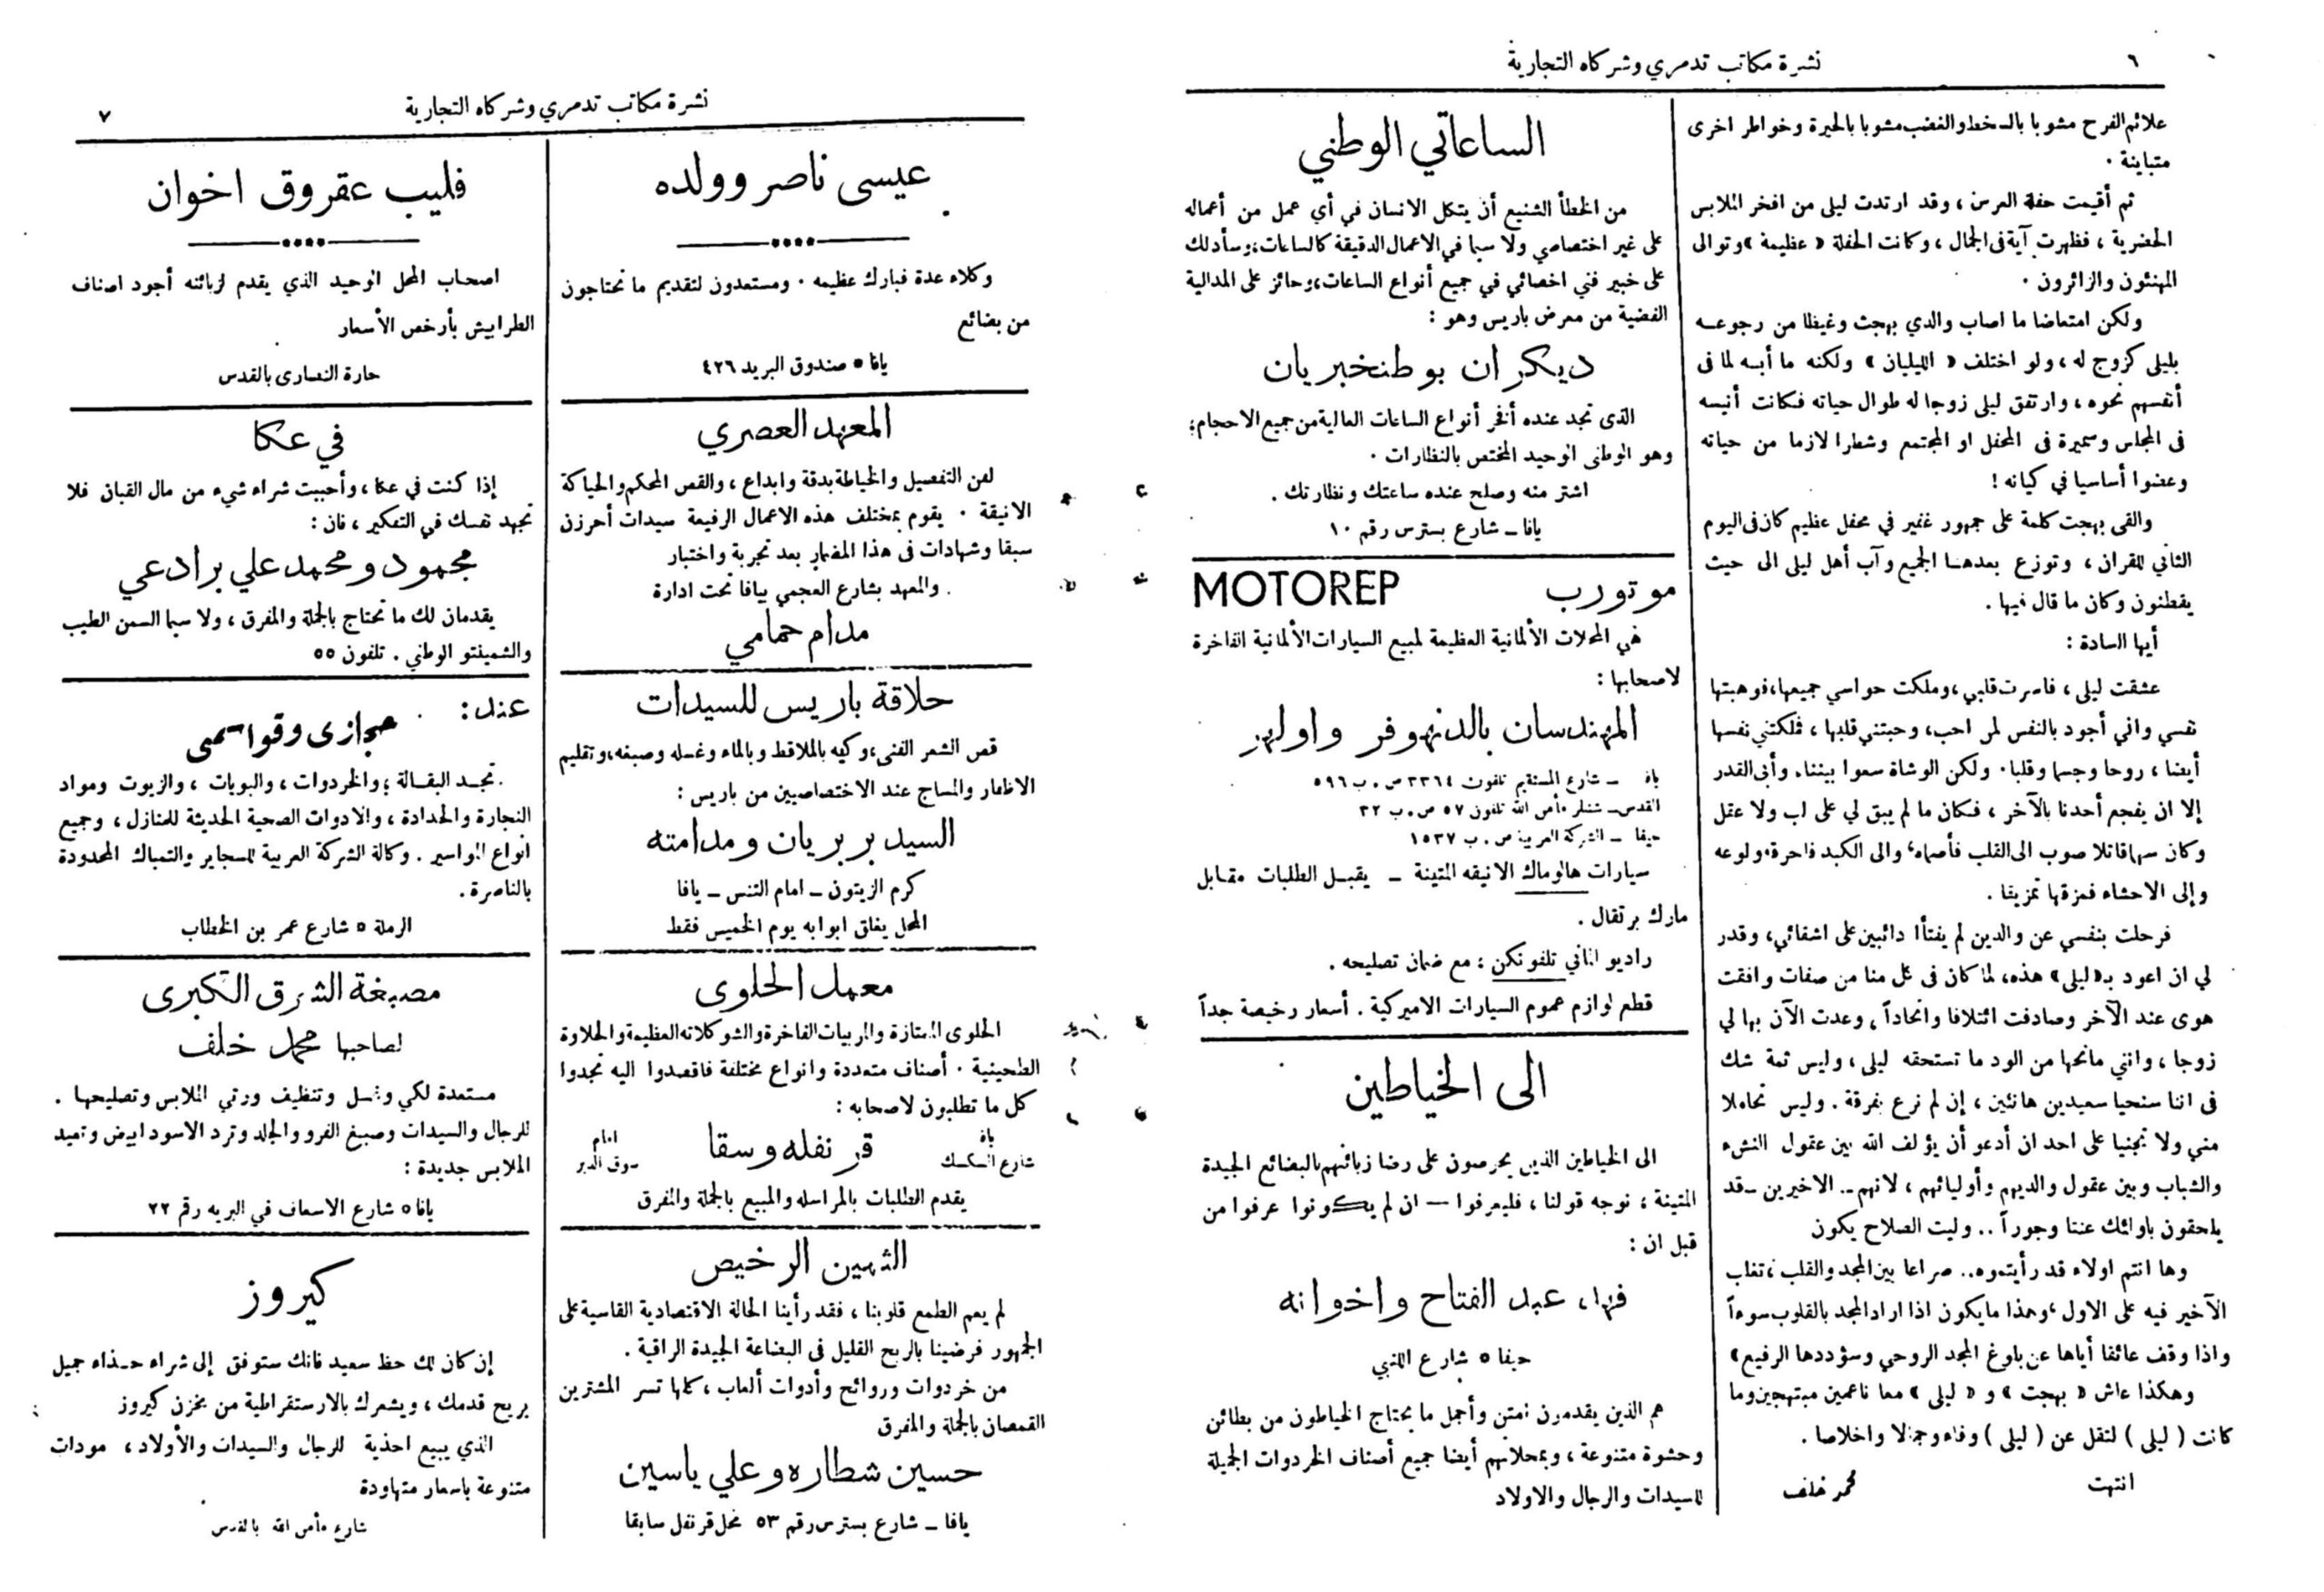 ٦
نشرة مكاتب تدمري وشركاه التجارية
علائم الفرح مشوبا بالسخط والغضب مشوبا بالحيرة وخواطر اخرى
متباينة .
ثم أقيمت حفلة العرس ، وقد ارتدت ليلى من افخر الملابس
الحضرية ، فظهرت آية فى الجمال ، وكانت الحفلة « عظيمة » وتوالى
المهنئون والزائرون .
ولكن امتعاضا ما اصاب والدي بهجت وغيظا من رجوعه
بليلى كزوج له ، ولو اختلف « الليليان » ولكنه ما أبه لما فى
أنفسهم نحوه ، وارتفق ليلى زوجا له طوال حياته فكانت أنيسه
فى المجلس وسميرة فى المحفل او المجتمع وشطرا لازما من حياته
وعضوا أساسيا في كيانه !
والقى بهجت كلمة على جمهور غفير في محفل عظيم كان فى اليوم
الثاني للقران ، وتوزع بعدها الجميع وآب أهل ليلى الى حيث
يقطنون وكان ما قال فيها .
أيها السادة :
عشقت ليلى ، فاسرت قلبي ، وملكت حواسي جميعها ، فوهبتها
نفسي واني أجود بالنفس لمن احب ، وحبتني قلبها ، فملكتني نفسها
أيضا ، روحا وجسما وقلبا . ولكن الوشاة سعوا بيننا . وأبى القدر
إلا ان يفجع أحدنا بالآخر ، فكان ما لم يبق لي على لب ولا عقل
وكان سهما قاتلا صوب الى القلب فأصماه ، والى الكبد فاحرقه ولوعه
وإلى الاحشاء فمزقها تمزيقا .
فرحلت بنفسي عن والدين لم يفتأا دائبين على اشقائي ، وقدر
لي ان اعود بـ « ليلى » هذه ، لما كان فى كل منا من صفات وافقت
هوى عند الآخر وصادفت ائتلافا واتحاداً ، وعدت الآن بها لي
زوجا ، وانني مانحها من الود ما تستحقه ليلى ، وليس ثمة شك
فى اننا سنحيا سعيدين هانئين ، إن لم نرع بفرقة . وليس تحاملا
مني ولا تجنيا على احد ان أدعو أن يؤلف الله بين عقول النشء
والشباب وبين عقول والديهم وأوليائهم ، لانهم .. الاخيرين ـ قد
يلحقون باوائك عنتا وجوراً .. وليت الصلاح يكون
وها انتم اولاء قد رأيتموه .. صراعا بين المجد والقلب ، تغلب
الآخير فيه على الاول ، وهذا ما يكون اذا اراد المجد بالقلوب سوءاً
واذا وقف عائقا أياها عن بلوغ المجد الروحي وسؤددها الرفيع »
وهكذا عاش « بهجت » و « ليلى » معا ناعمين مبتهجين وما
كانت ( ليلى ) لتقل عن ( ليلى ) وفاء وجمالا واخلاصا .
انتهت
محمد خلف
الساعاتي الوطني
من الخطأ الشنيع أن يتكل الانسان في أي عمل من أعماله
على غير اختصاصي ولا سيما في الاعمال الدقيقة كالساعات ، وسأدلك
على خبير فني اخصائي في جميع أنواع الساعات ، وحائز على المدالية
الفضية من معرض باريس وهو :
ديكران بوطنخبريان
الذى تجد عنده أفخر أنواع الساعات العالية من جميع الاحجام ؛
وهو الوطنى الوحيد المختص بالنظارات .
اشتر منه وصلح عنده ساعتك ونظارتك .
يافا ـ شارع بسترس رقم ١٠
موتورب MOTOREP
هي المحلات الألمانية العظيمة لمبيع السيارات الألمانية الفاخرة
لاصحابها :
المهندسان بالدنهوفر واولهر
يافا ـ شارع المستقيم تلفون ٣٣٦٤ ص . ب ٥٩٦
القدس ـ شنلر مأمن الله تلفون ٥٧ ص . ب ٣٢
حيفا ـ الشركة العربية ص . ب ١٥٣٧
سيارات هالوماك الانيقه المتينة ـ يقبل الطلبات مقابل
مارك برتقال .
راديو الماني تلفونكن : مع ضمان تصليحه .
قطع لوازم عموم السيارات الاميركية . أسعار رخيصة جداً
الى الخياطين
الى الخياطين الذين يحرصون على رضا زبائنهم بالبضائع الجيدة
المتينة ، نوجه قولنا ، فليعرفوا — ان لم يكونوا عرفوا من
قبل ان :
فهاد عبد الفتاح واخوانه
حيفا ٥ شارع اللنبي
هم الذين يقدمون أمتن وأجمل ما يحتاج الخياطون من بطائن
وحشوة متنوعة ، وبمحلاتهم أيضا جميع أصناف الخردوات الجميلة
للسيدات والرجال والاولاد
نشرة مكاتب تدمري وشركاه التجارية
٧
عيسى ناصر وولده
وكلاء عدة فبارك عظيمه . ومستعدون لتقديم ما تحتاجون
من بضائع
يافا ٥ صندوق البريد ٤٢٦
المعهد العصري
لفن التفصيل والخياطة بدقة وابداع ، والقص المحكم والحياكة
الانيقة . يقوم بمختلف هذه الاعمال الرفيعة سيدات أحرزن
سبقا وشهادات فى هذا المضمار بعد تجربة واختبار
. والمعهد بشارع العجمي بيافا تحت ادارة
مدام حمامي
حلاقة باريس للسيدات
قص الشعر الفنى ، وكيه بالملاقط وبالماء وغسله وصبغه ، وتقليم
الاظفار والمساج عند الاختصاصيين من باريس :
السيد بربريان ومدامته
كرم الزيتون ـ امام التنس ـ يافا
المحل يغلق ابوابه يوم الخميس فقط
معمل الحلوى
الحلوى الممتازة والمربيات الفاخرة والشوكلاته العظيمة والحلاوة
الطحينية . أصناف متعددة وانواع مختلفة فاقصدوا اليه تجدوا
كل ما تطلبون لاصحابه :
يافا
شارع السكسك
قرنفله وسقا
امام
سوق الدير
يقدم الطلبات بالمراسله والمبيع بالجملة والمفرق
الثمين الرخيص
لم يعم الطمع قلوبنا ، فقد رأينا الحالة الاقتصادية القاسية على
الجمهور فرضينا بالربح القليل فى البضاعة الجيدة الراقية .
من خردوات وروائح وأدوات ألعاب ، كلها تسر المشترين
القمصان بالجملة والمفرق
حسين شطاره وعلي ياسين
يافا ـ شارع بسترس رقم ٥٣ محل قرنفل سابقا
فليب عقروق اخوان
اصحاب المحل الوحيد الذي يقدم لزبائنه أجود اصناف
الطرابيش بأرخص الأسعار
حارة النصارى بالقدس
في عكا
إذا كنت في عكا ، وأحببت شراء شيء من مال القبان فلا
تجهد نفسك في التفكير ، فان :
محمود ومحمد علي برادعي
يقدمان لك ما تحتاج بالجملة والمفرق ، ولا سيما السمن الطيب
والشمينتو الوطني . تلفون ٥٥
عند :
حجازى وقواسمى
. تجد البقالة ؛ والخردوات ، والبويات ، والزيوت ومواد
النجارة والحدادة ، والادوات الصحية الحديثة للمنازل ، وجميع
انواع المواسير . وكالة الشركة العربية للسجاير والتمباك المحدودة
بالناصرة .
الرملة ٥ شارع عمر بن الخطاب
مصبغة الشرق الكبرى
لصاحبها محمد خلف
مستعدة لكي وغسل وتنظيف ورتي الملابس وتصليحها .
للرجال والسيدات وصبغ الفرو والجلد وترد الاسود ابيض وتعيد
الملابس جديدة :
يافا ٥ شارع الاسعاف في البريه رقم ٢٢
كيروز
إن كان لك حظ سعيد فانك ستوفق إلى شراء حذاء جميل
يريح قدمك ، ويشعرك بالارستقراطية من مخزن كيروز
الذي يبيع احذية للرجال والسيدات والأولاد ، مودات
متنوعة باسعار متهاودة
شارع مأمن الله بالقدس